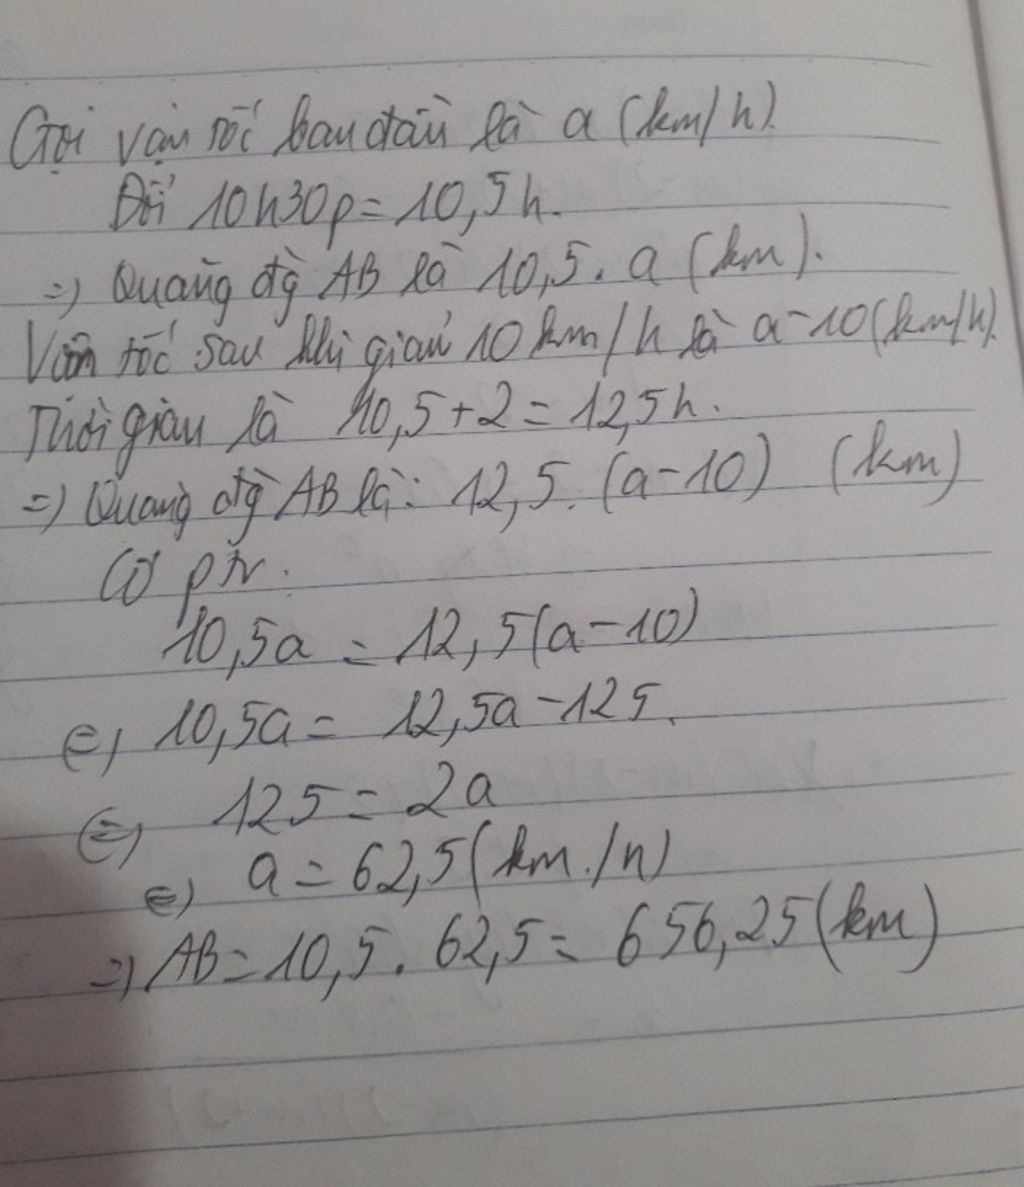 Gọi vận tốc ban đầu là a (km/h).
Đổi 10h30p = 10,5h.
=) Quãng đg AB là 10,5. a (km).
Vận tốc sau khi giảm 10 km/h là a-10(km/h).
Thời gian là 10,5+2 = 12,5h.
=) Quãng đg AB là: 12,5. (a-10) (km)
Có ptr.
10,5a = 12,5(a-10)
(=) 10,5a = 12,5a-125.
(=) 125 = 2a
(=) a = 62,5(km/h)
=) AB = 10,5. 62,5 = 656,25(km)